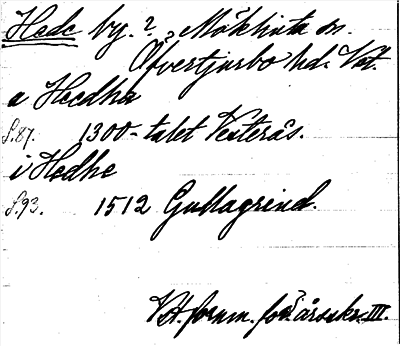 Hede by.? Möklinta sn.
Övertjurbo hd. Vst.
a Heedha
s. 87. 1300-talet Vesterås.
i Hedhe
s. 93. 1512 Gullagrind.
Vst. fornm. för:s årsskr. III.